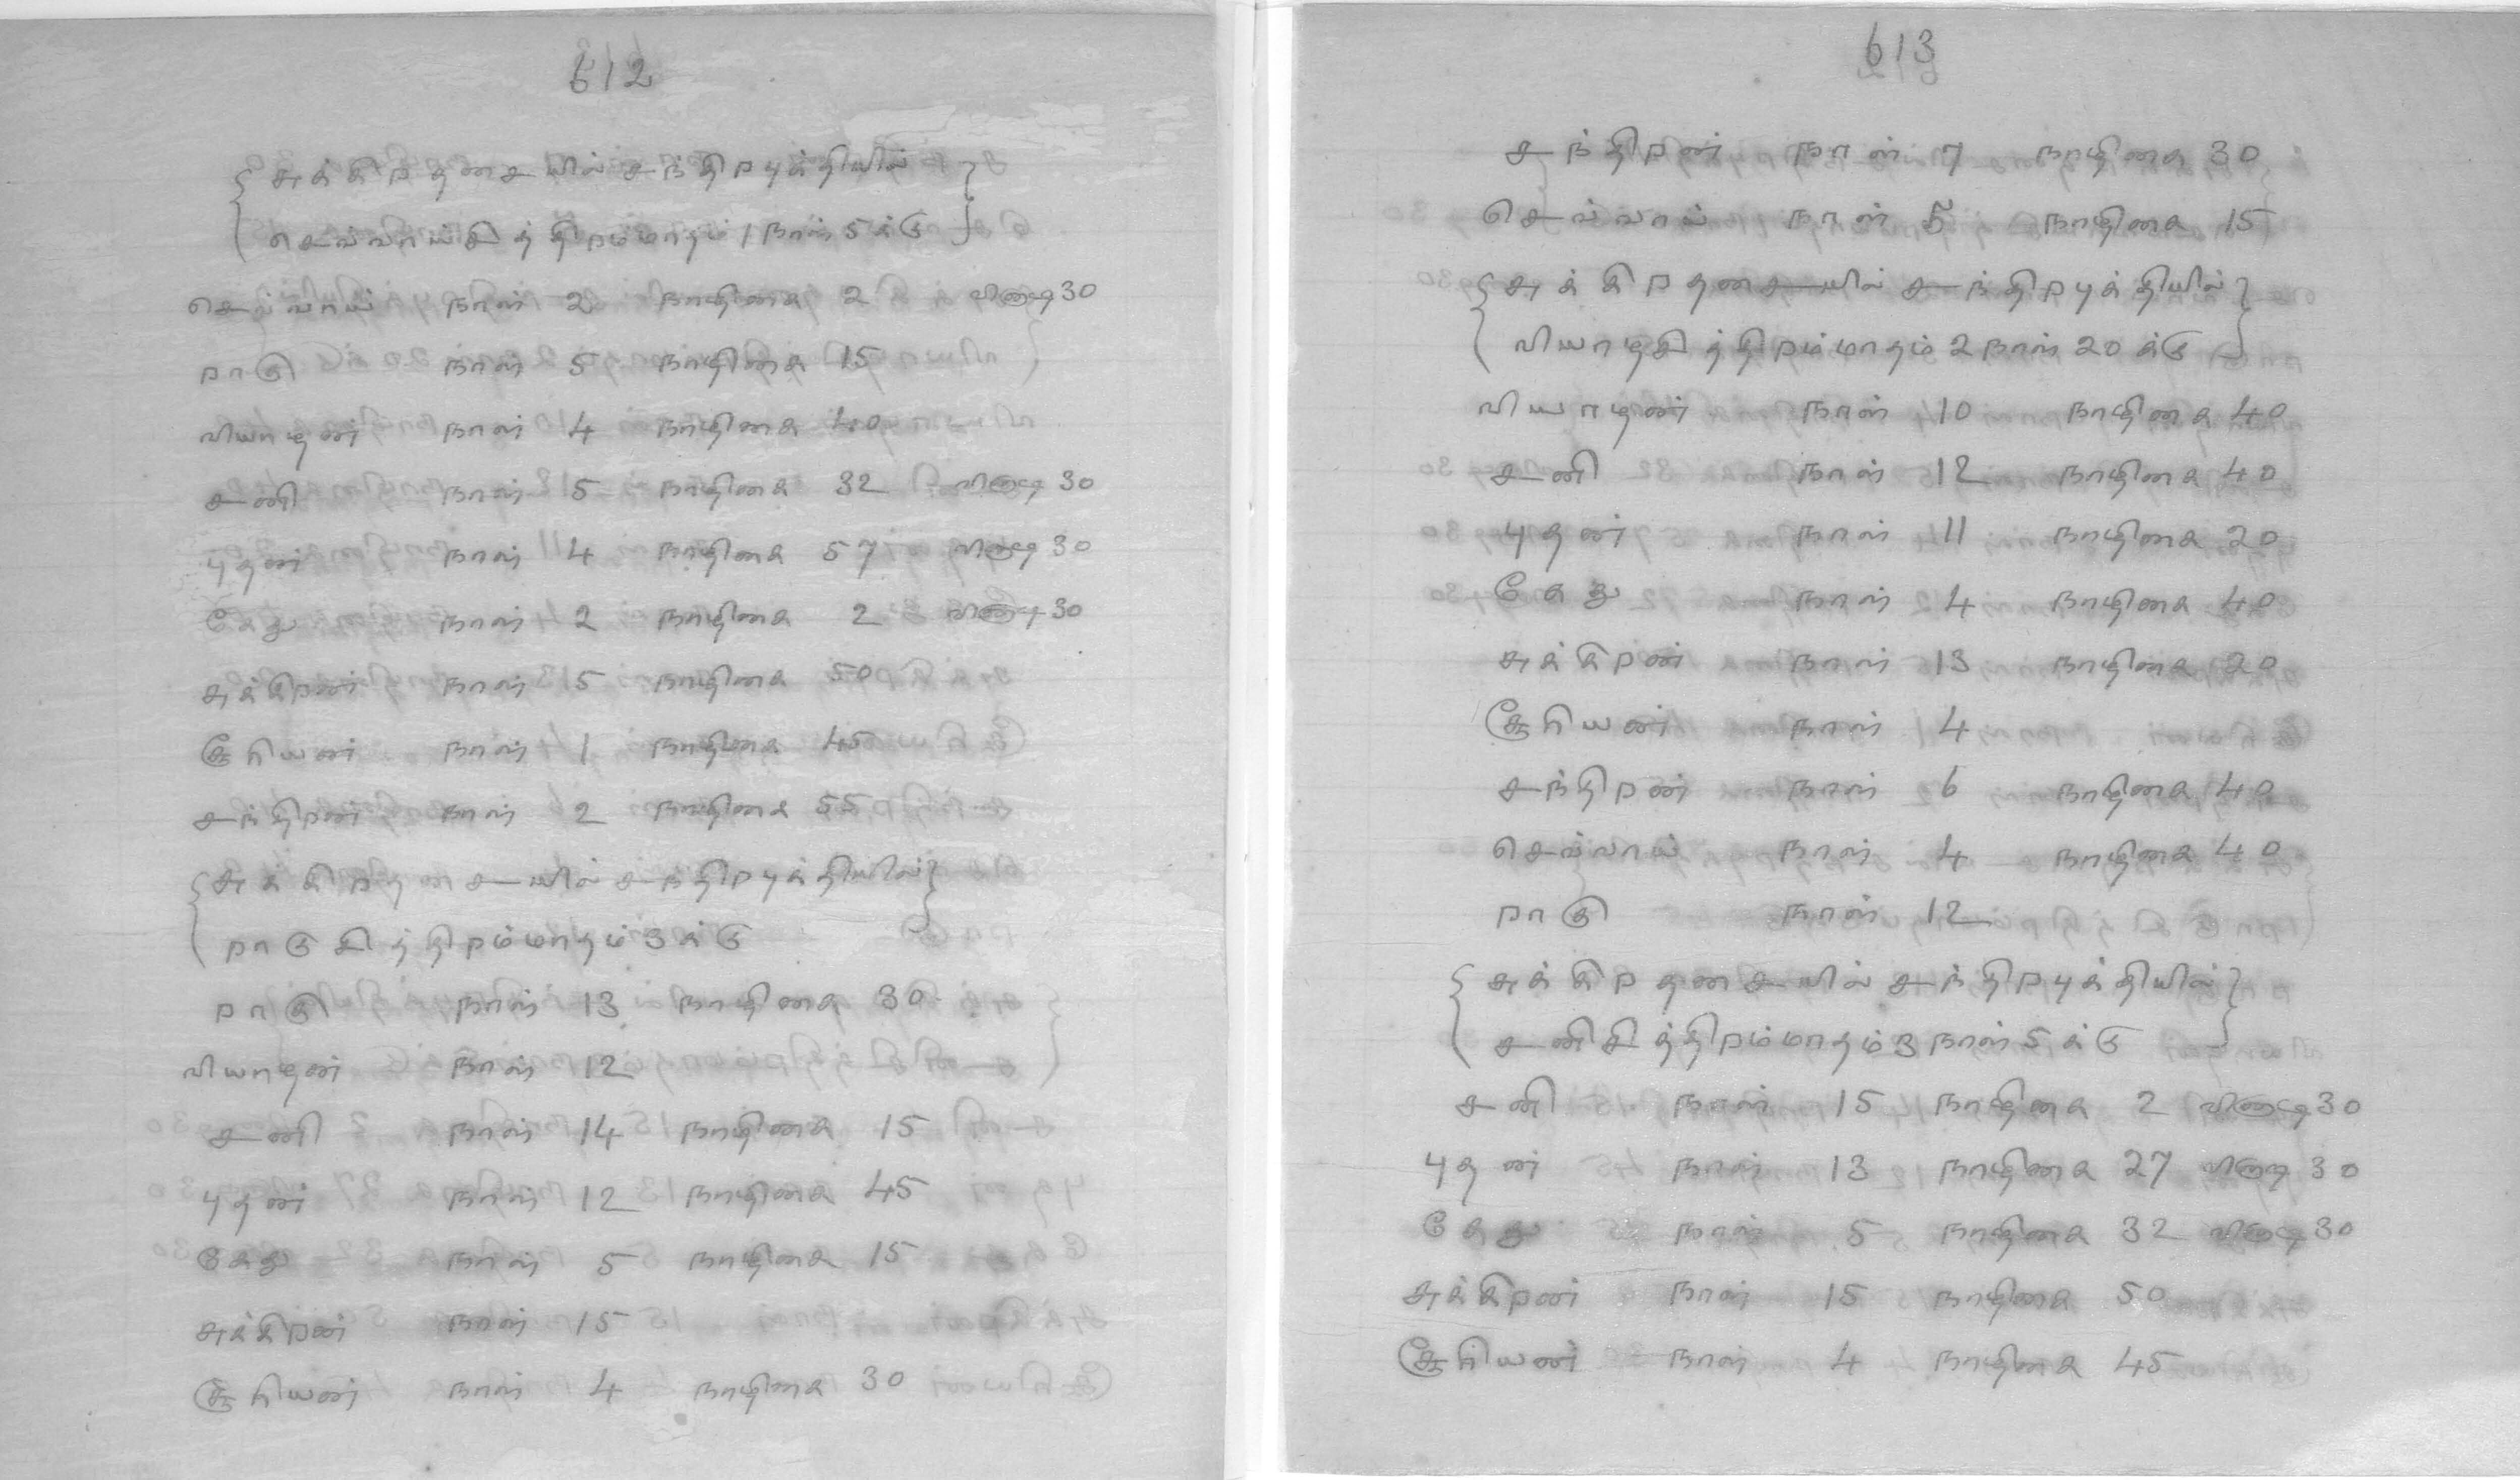 612
{ சுக்கிறதசையில் சந்திறபுக்தியில் }
{ செவ்வாய்சித்திறம்மாதம் 1 நாள் 5 க்கு }
செவ்வாய் நாள் 2 நாழிகை 2 வினாடி 30
றாகு நாள் 5 நாழிகை 15
வியாழன் நாள் 4 நாழிகை 40
சனி நாள் 5 நாழிகை 32 வினாடி 30
புதன் நாள் 4 நாழிகை 57 வினாடி 30
கேது நாள் 2 நாழிகை 2 வினாடி 30
சுக்கிறன் நாள் 5 நாழிகை 50
சூரியன் நாள் 1 நாழிகை 45
சந்திறன் நாள் 2 நாழிகை 55
{ சுக்கிறதசையில் சந்திறபுக்தியில் }
{ றாகுசித்திறம்மாதம் 3 க்கு }
றாகு நாள் 13 நாழிகை 30
வியாழன் நாள் 12
சனி நாள் 14 நாழிகை 15
புதன் நாள் 12 நாழிகை 45
கேது நாள் 5 நாழிகை 15
சுக்கிறன் நாள் 15
சூரியன் நாள் 4 நாழிகை 30
613
சந்திறன் நாள் 7 நாழிகை 30
செவ்வாய் நாள் 5 நாழிகை 15
{ சுக்கிறதசையில் சந்திறபுக்தியில் }
{ வியாழசித்திறம்மாதம் 2 நாள் 20 க்கு }
வியாழன் நாள் 10 நாழிகை 40
சனி நாள் 12 நாழிகை 40
புதன் நாள் 11 நாழிகை 20
கேது நாள் 4 நாழிகை 40
சுக்கிறன் நாள் 13 நாழிகை 20
சூரியன் நாள் 4
சந்திறன் நாள் 6 நாழிகை 40
செவ்வாய் நாள் 4 நாழிகை 40
றாகு நாள் 12
{ சுக்கிறதசையில் சந்திறபுக்தியில் }
{ சனிசித்திறம்மாதம் 3 நாள் 5 க்கு }
சனி நாள் 15 நாழிகை 2 வினாடி 30
புதன் நாள் 13 நாழிகை 27 வினாடி 30
கேது நாள் 5 நாழிகை 32 வினாடி 30
சுக்கிறன் நாள் 15 நாழிகை 50
சூரியன் நாள் 4 நாழிகை 45